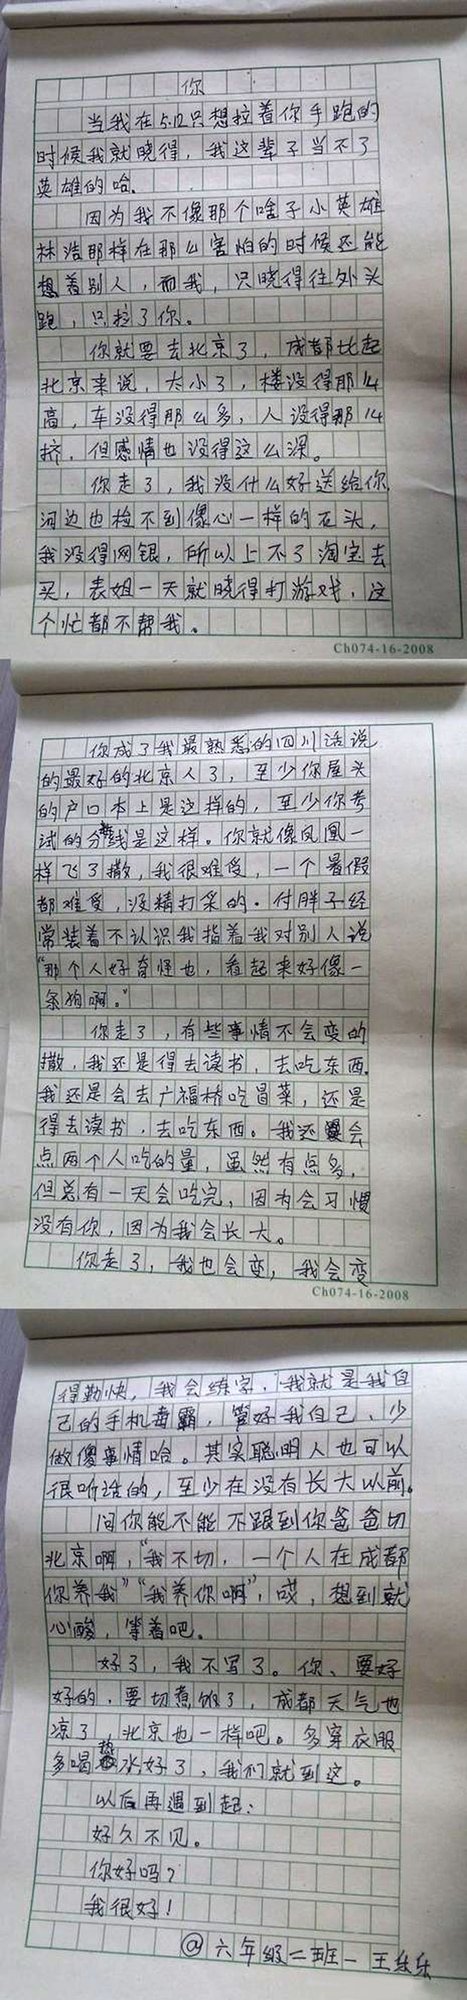 你
当我在5.12只想拉着你手跑的
时候我就晓得，我这辈子当不了
英雄的哈.
因为我不像那个啥子小英雄
林浩那样在那么害怕的时候还能
想着别人，而我，只晓得往外头
跑，只拉了你。
你就要去北京了，成都比起
北京来说，太小了，楼没得那么
高，车没得那么多，人没得那么
挤，但感情也没得这么深。
你走了，我没什么好送给你，
河边也捡不到像心一样的石头，
我没得网银，所以上不了淘宝去
买，表姐一天就晓得打游戏，这
个忙都不帮我。
Ch074-16-2008
你成了我最熟悉的四川话说
的最好的北京人了，至少你屋头
的户口本上是这样的，至少你考
试的分数线是这样。你就像凤凰一
样飞了撒，我很难受，一个暑假
都难受，没精打采的.付胖子经
常装着不认识我指着我对别人说
“那个人好奇怪也，看起来好像一
条狗啊。”
你走了，有些事情不会变的
撒，我还是得去读书，去吃东西.
我还是会去广福桥吃冒菜，还是
得去读书，去吃东西。我还是会
点两个人吃的量，虽然有点多，
但总有一天会吃完，因为会习惯
没有你，因为我会长大。
你走了，我也会变，我会变
Ch074-16-2008
得勤快，我会练字，我就是我自
己的手机毒霸，管好我自己、少
做傻事情哈。其实聪明人也可以
很听话的，至少在没有长大以前。
问你能不能不跟到你爸爸切
北京啊，“我不切，一个人在成都
你养我”“我养你啊”，哎，想到就
心酸，等着吧。
好了，我不写了。你、要好
好的，要切煮饭了，成都天气也
凉了，北京也一样吧。多穿衣服
多喝热水好了，我们就到这。
以后再遇到起：
好久不见。
你好吗？
我很好！
@六年级二班一王乐乐